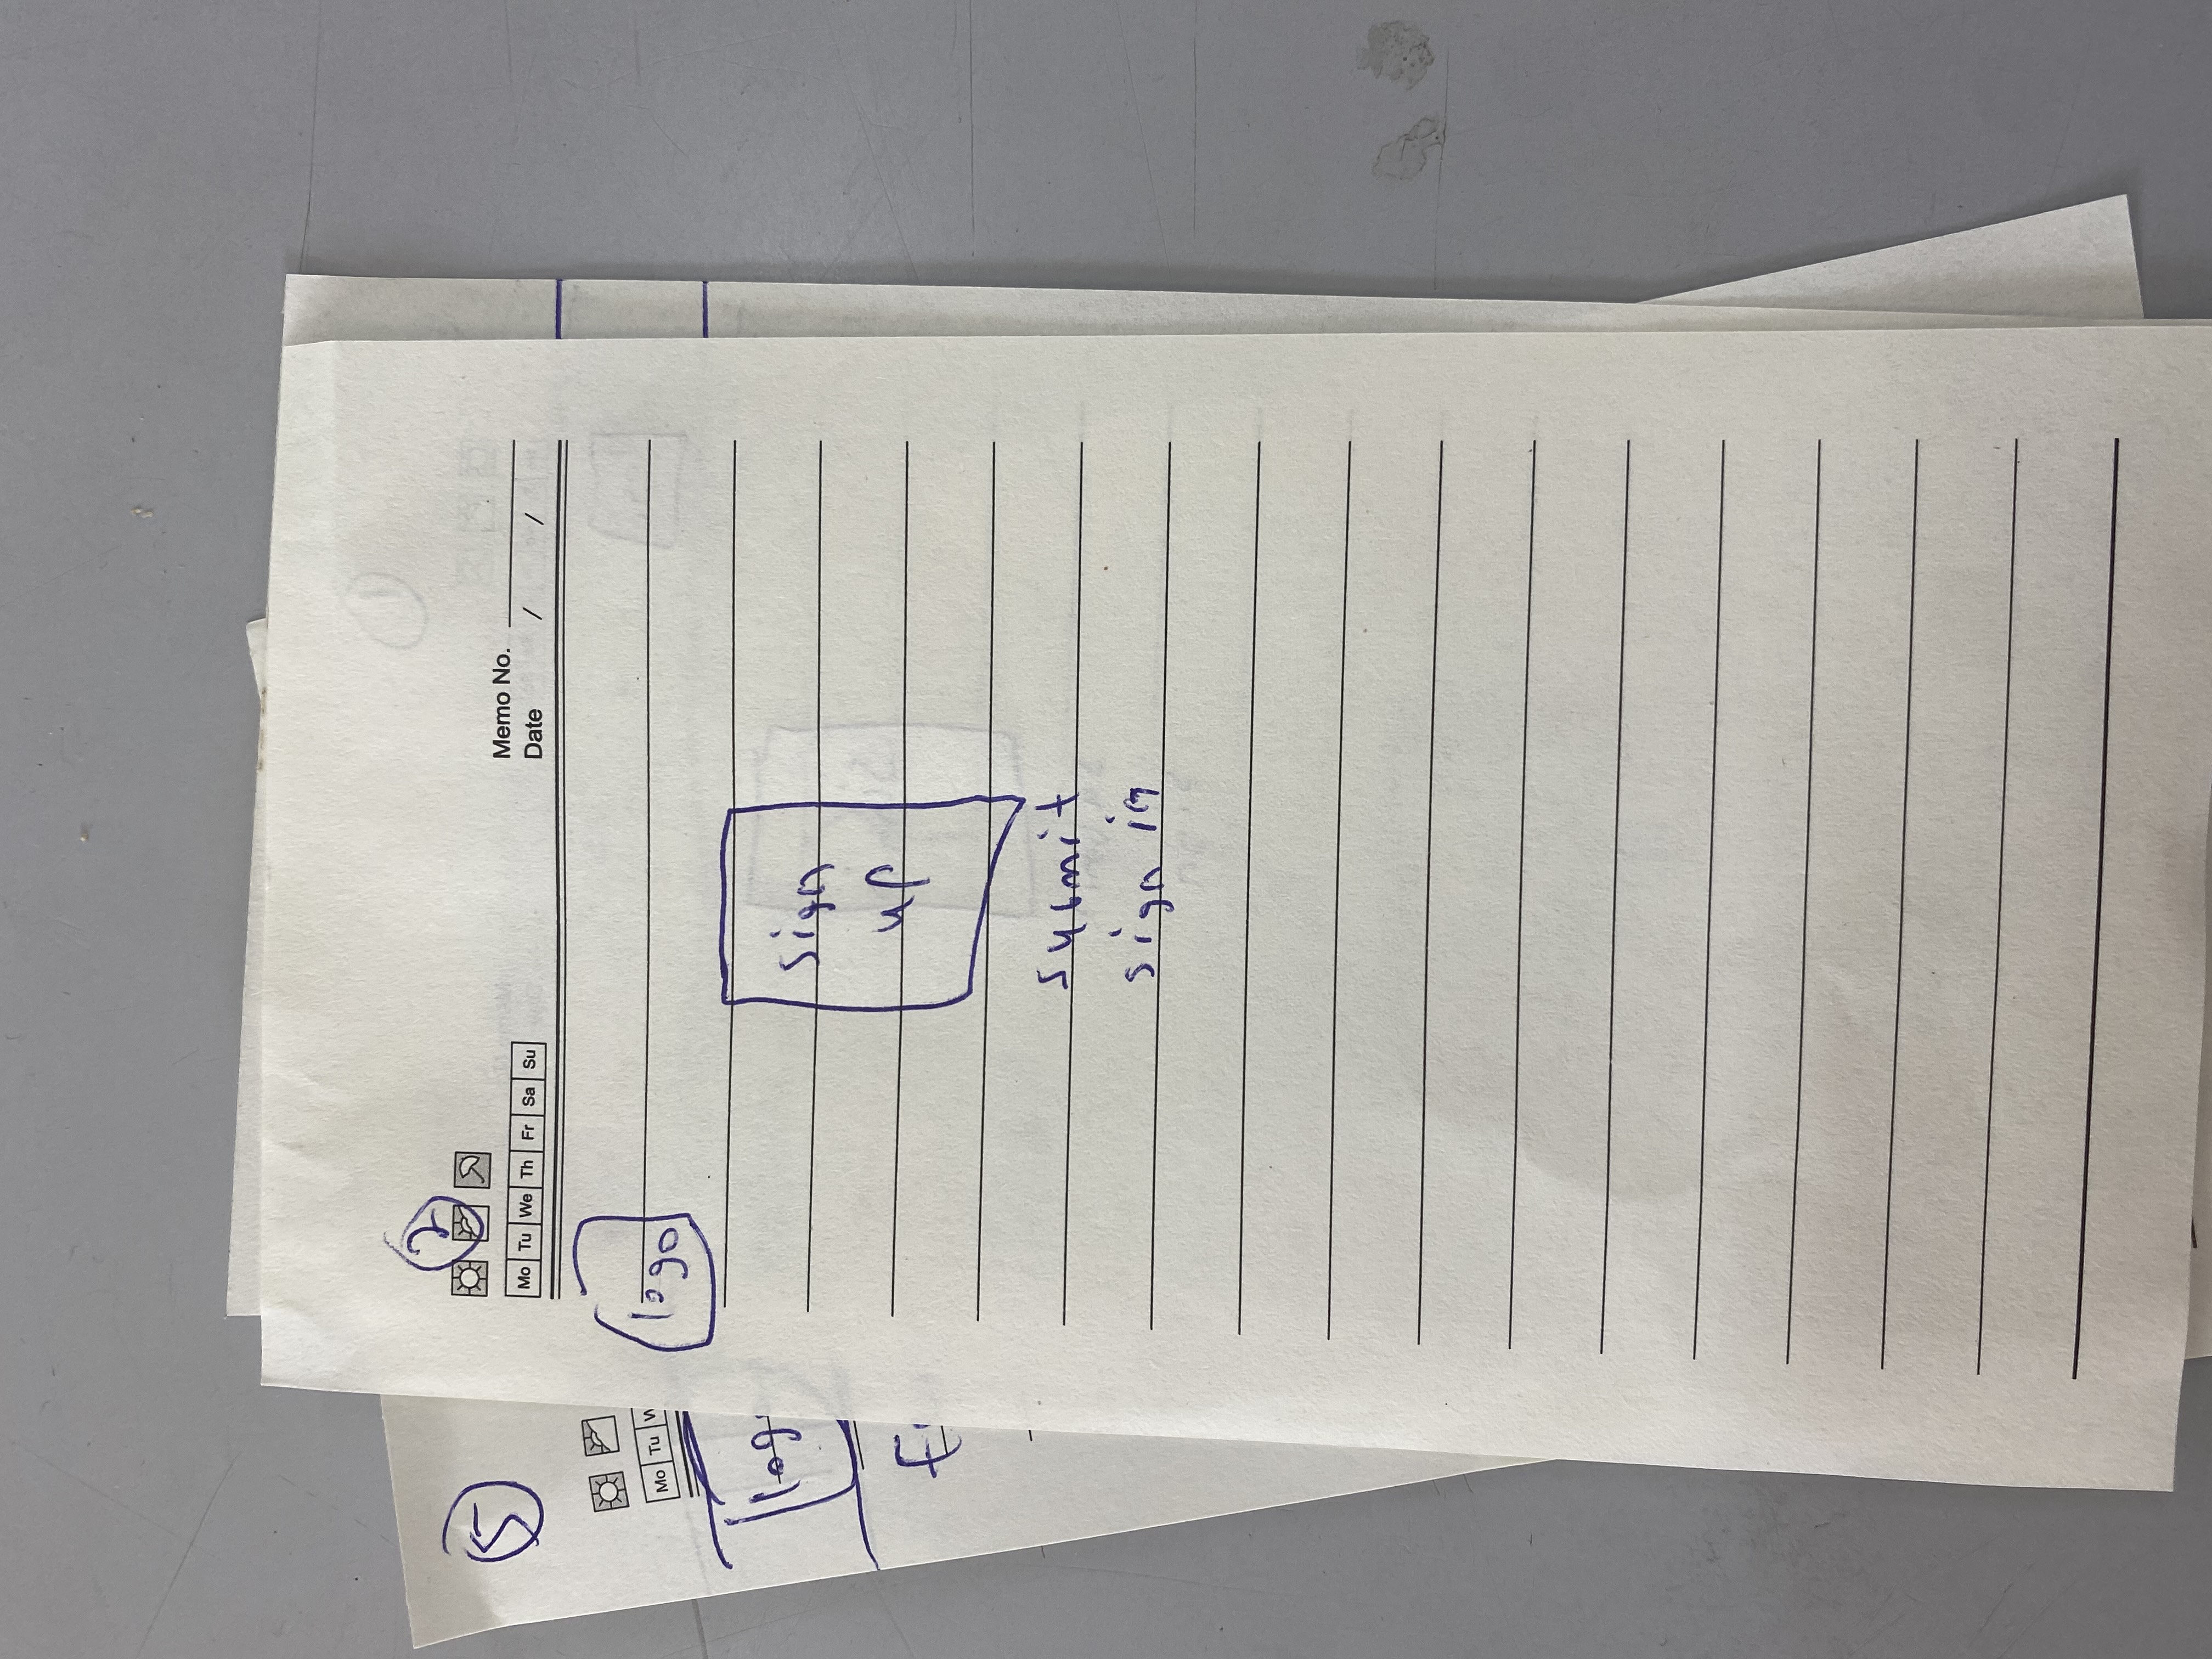 5
Mo Tu W
2
Mo Tu We Th Fr Sa Su
Memo No.
Date / /
logo
sign
up
submit
sign in